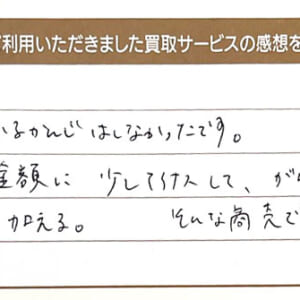 利用いただきました買取サービスの感想を
いるかんじはしなかったです。
金額に 少し
加える。 そんな商売で